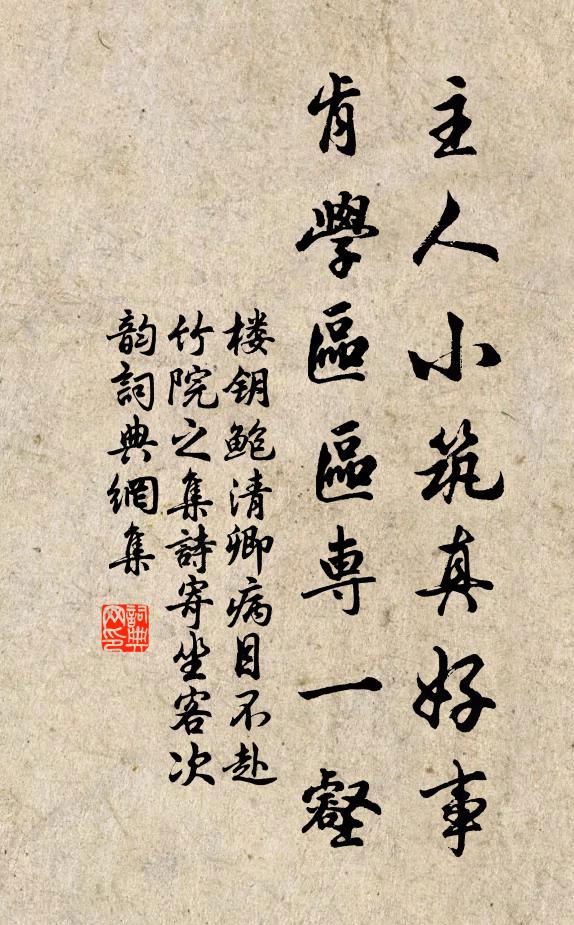 主人小筑真好事
肯學區區専一壑
楼钥鲍清卿病目不赴
竹院之集詩寄坐客次
韵詞典網集
詞典
网印